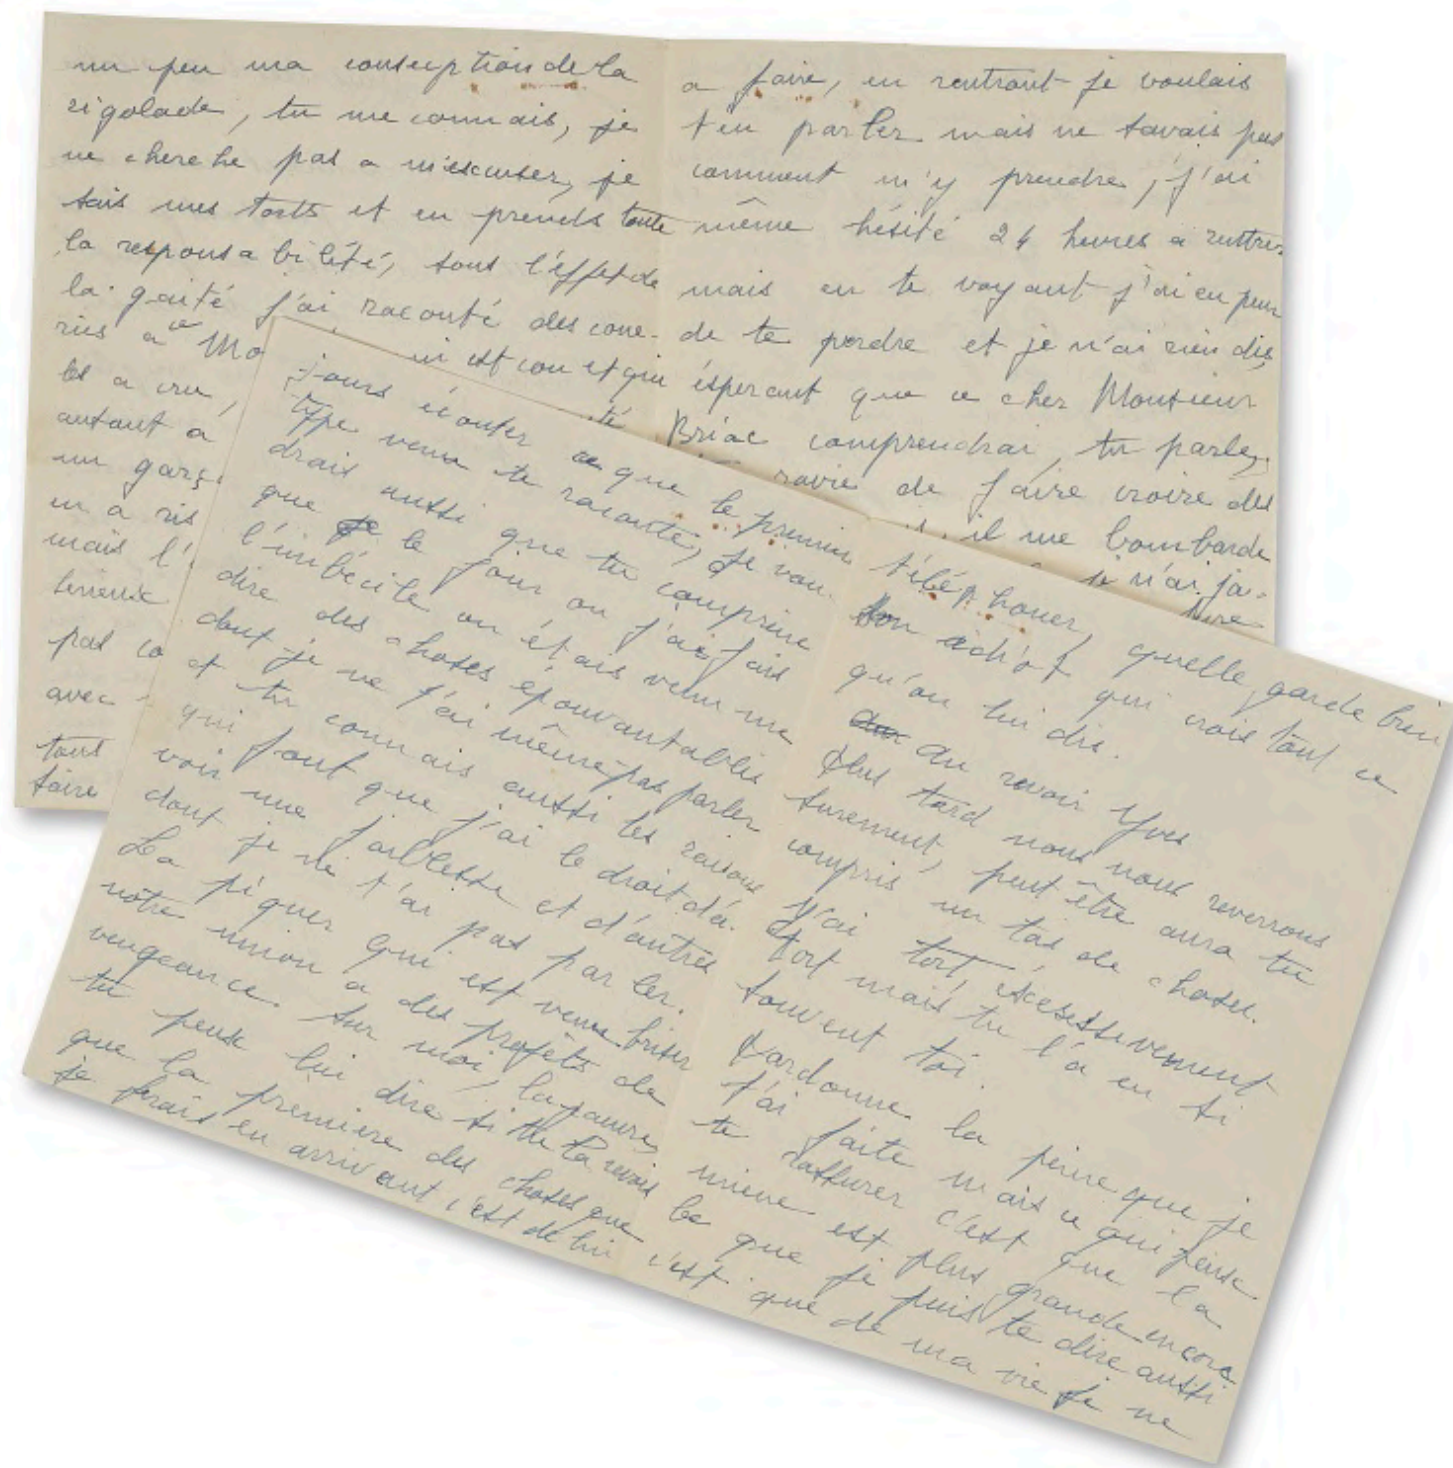 un peu ma conseption de la
rigolade, tu me connais, je
ne cherche pas a m'escuser, je
sais mes torts et en prends toute
la responsabilité, sous l'effet de
la gaité j'ai raconté des cone-
ries a ce Mo
ui est con et qui
les a cru,
té
autant a
un garç
m a ris
mais l'
serieux
pas co
avec
tout
taire
a faire, en rentrant je voulais
t'en parler mais ne savais pas
comment m'y prendre, j'ai
même hésité 24 heures a rentrer
mais en te voyant j'ai eu peur
de te perdre et je n'ai rien dis,
ésperant que ce cher Monsieur
Briac comprendrai, tu parle,
ravie de faire croire des
il me bombarde
je n'ai ja-
jours écouter ce que le premier
type venu te raconte, je vou-
drais aussi que tu comprène
que le jour ou j'ai fais
l'imbécile on étais venu me
dire des choses épouvantables
dont je ne t'ai même pas parler
et tu connais aussi les raisons
qui font que j'ai le droit d'a-
voir une faiblesse et d'autres
dont je ne t'ai pas parler.
La piquer qui est venu briser
notre union a des projets de
vengeance sur moi, la pauvre,
tu peux lui dire si tu la revois
que la premiere des choses que
je ferais en arrivant c'est de lui
téléphoner, quelle garde bien
son adiof qui crois tout ce
qu'on lui dis.
au revoir Yves
Plus tard nous nous reverrons
surement, peut être aura tu
compris un tas de choses.
J'ai tort, excessivement
tort mais tu l'a eu si
souvent toi.
Pardonne la peine que je
t'ai faite mais ce qui peux
te rassurer c'est que la
mienne est plus grande encore
ce que je puis te dire aussi
c'est que de ma vie je ne